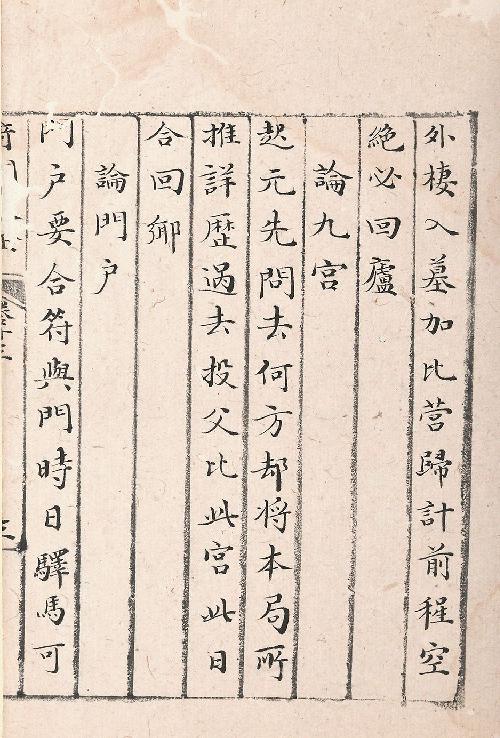 外棲入墓加比營歸計前程空
絶必回廬
論九宮
起元先問去何方却將本局所
推詳歴過去投父比此宮此日
合回鄉
論門户
門户要合符與門時日驛馬可